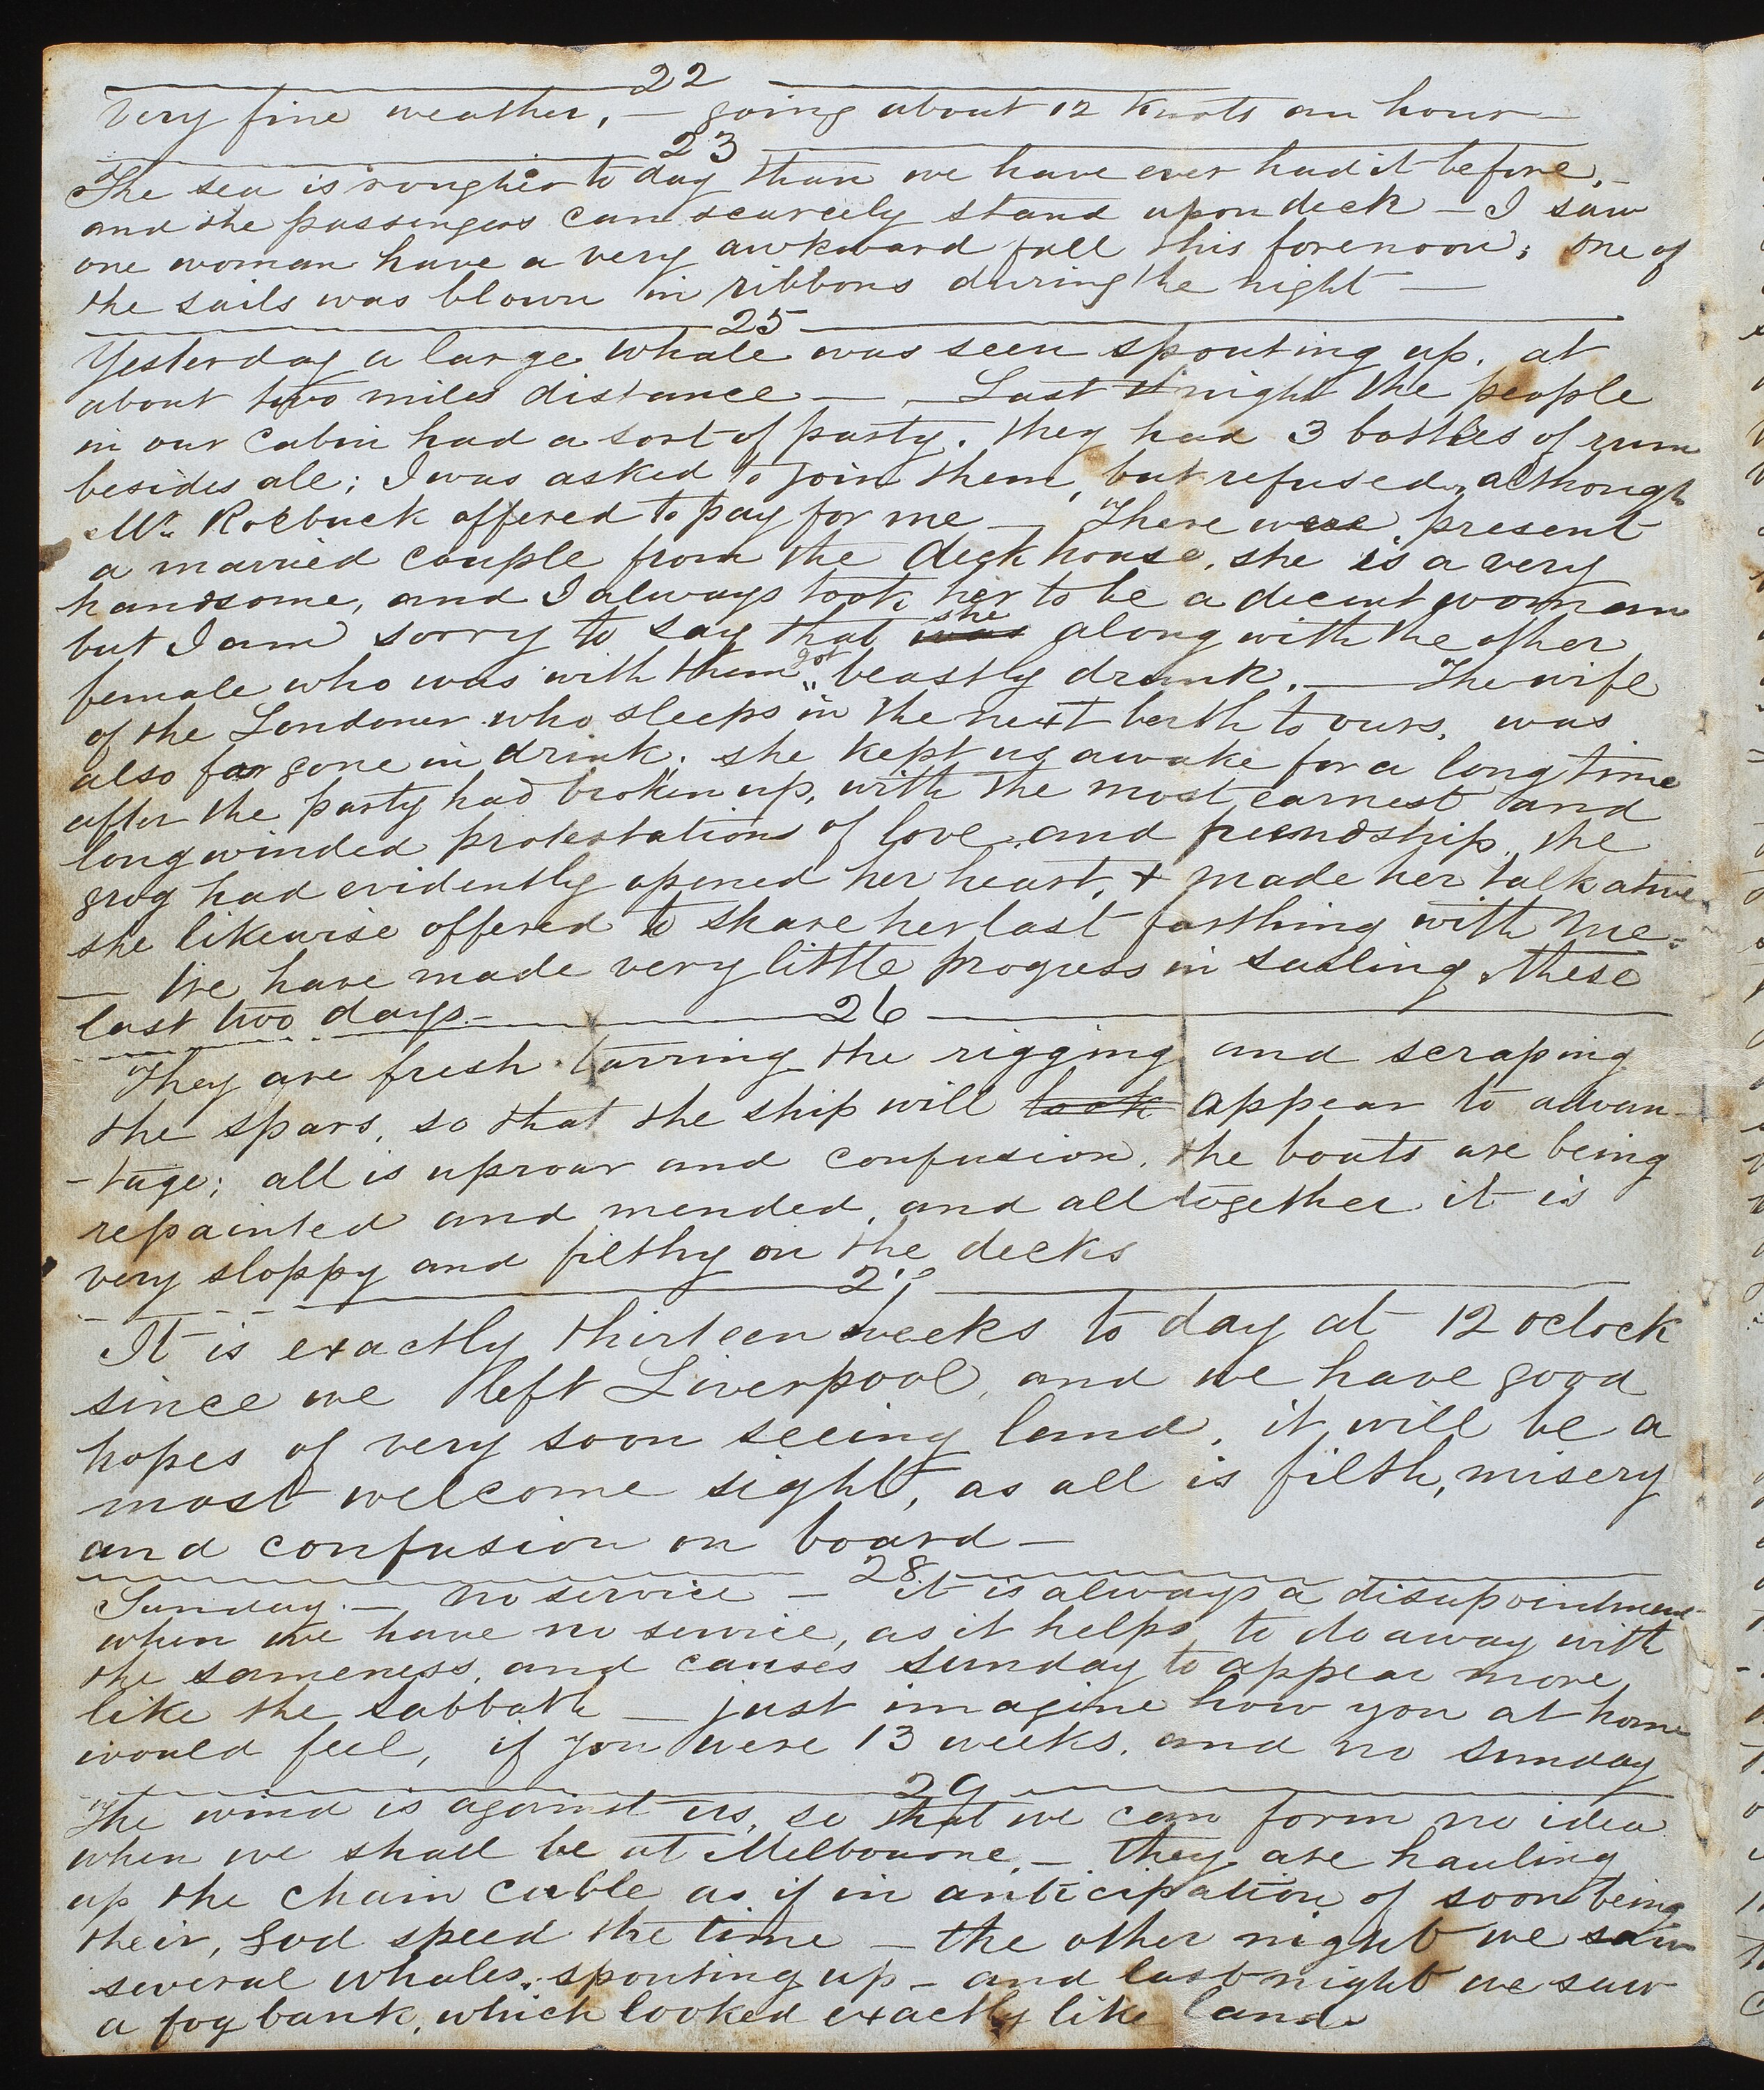 22
Very fine weather, — going about 12 knots an hour —
23
The sea is rougher to day than we have ever had it before, —
and the passengers can scarcely stand upon deck — I saw
one woman have a very awkward fall this forenoon; one of
the sails was blown in ribbons during the night —
25
Yesterday a large whale was seen spouting up, at
about two miles distance — Last night the people
in our cabin had a sort of party. they had 3 bottles of rum
besides ale; I was asked to join them, but refused, although
Mr. Roebuck offered to pay for me — There were present
a married couple from the deck house, she is a very
handsome, and I always took her to be a decent woman
but I am sorry to say that was she along with the other
female who was with them got beastly drunk. — The wife
of the Londoner who sleeps in the next berth to ours, was
also far gone in drink. she kept us awake for a long time
after the party had broken up, with the most earnest and
longwinded protestations of love and friendship, the
grog had evidently opened her heart, + made her talkative
she likewise offered to share her last farthing with me.
— We have made very little progress in sailing these
last two days —
26
They are fresh tarring the rigging and scraping
the spars, so that the ship will look appear to advan-
-tage; all is uproar and confusion, the boats are being
repainted and mended, and all together it is
very sloppy and filthy on the decks
27
It is exactly thirteen weeks to day at 12 oclock
since we left Liverpool, and we have good
hopes of very soon seeing land, it will be a
most welcome sight, as all is filth, misery
and confusion on board —
28
Sunday — no service — it is always a disapointment
when we have no service, as it helps to do away with
the sameness, and causes sunday to appear more
like the sabbath — just imagine how you at home
would feel, if you were 13 weeks, and no sunday
29
The wind is against us, so that we can form no idea
when we shall be at Melbourne, — they are hauling
up the chain cable as if in anticipation of soon being
their, God speed the time — the other night we saw
several whales spouting up — and last night we saw
a fog bank, which looked exactly like land.